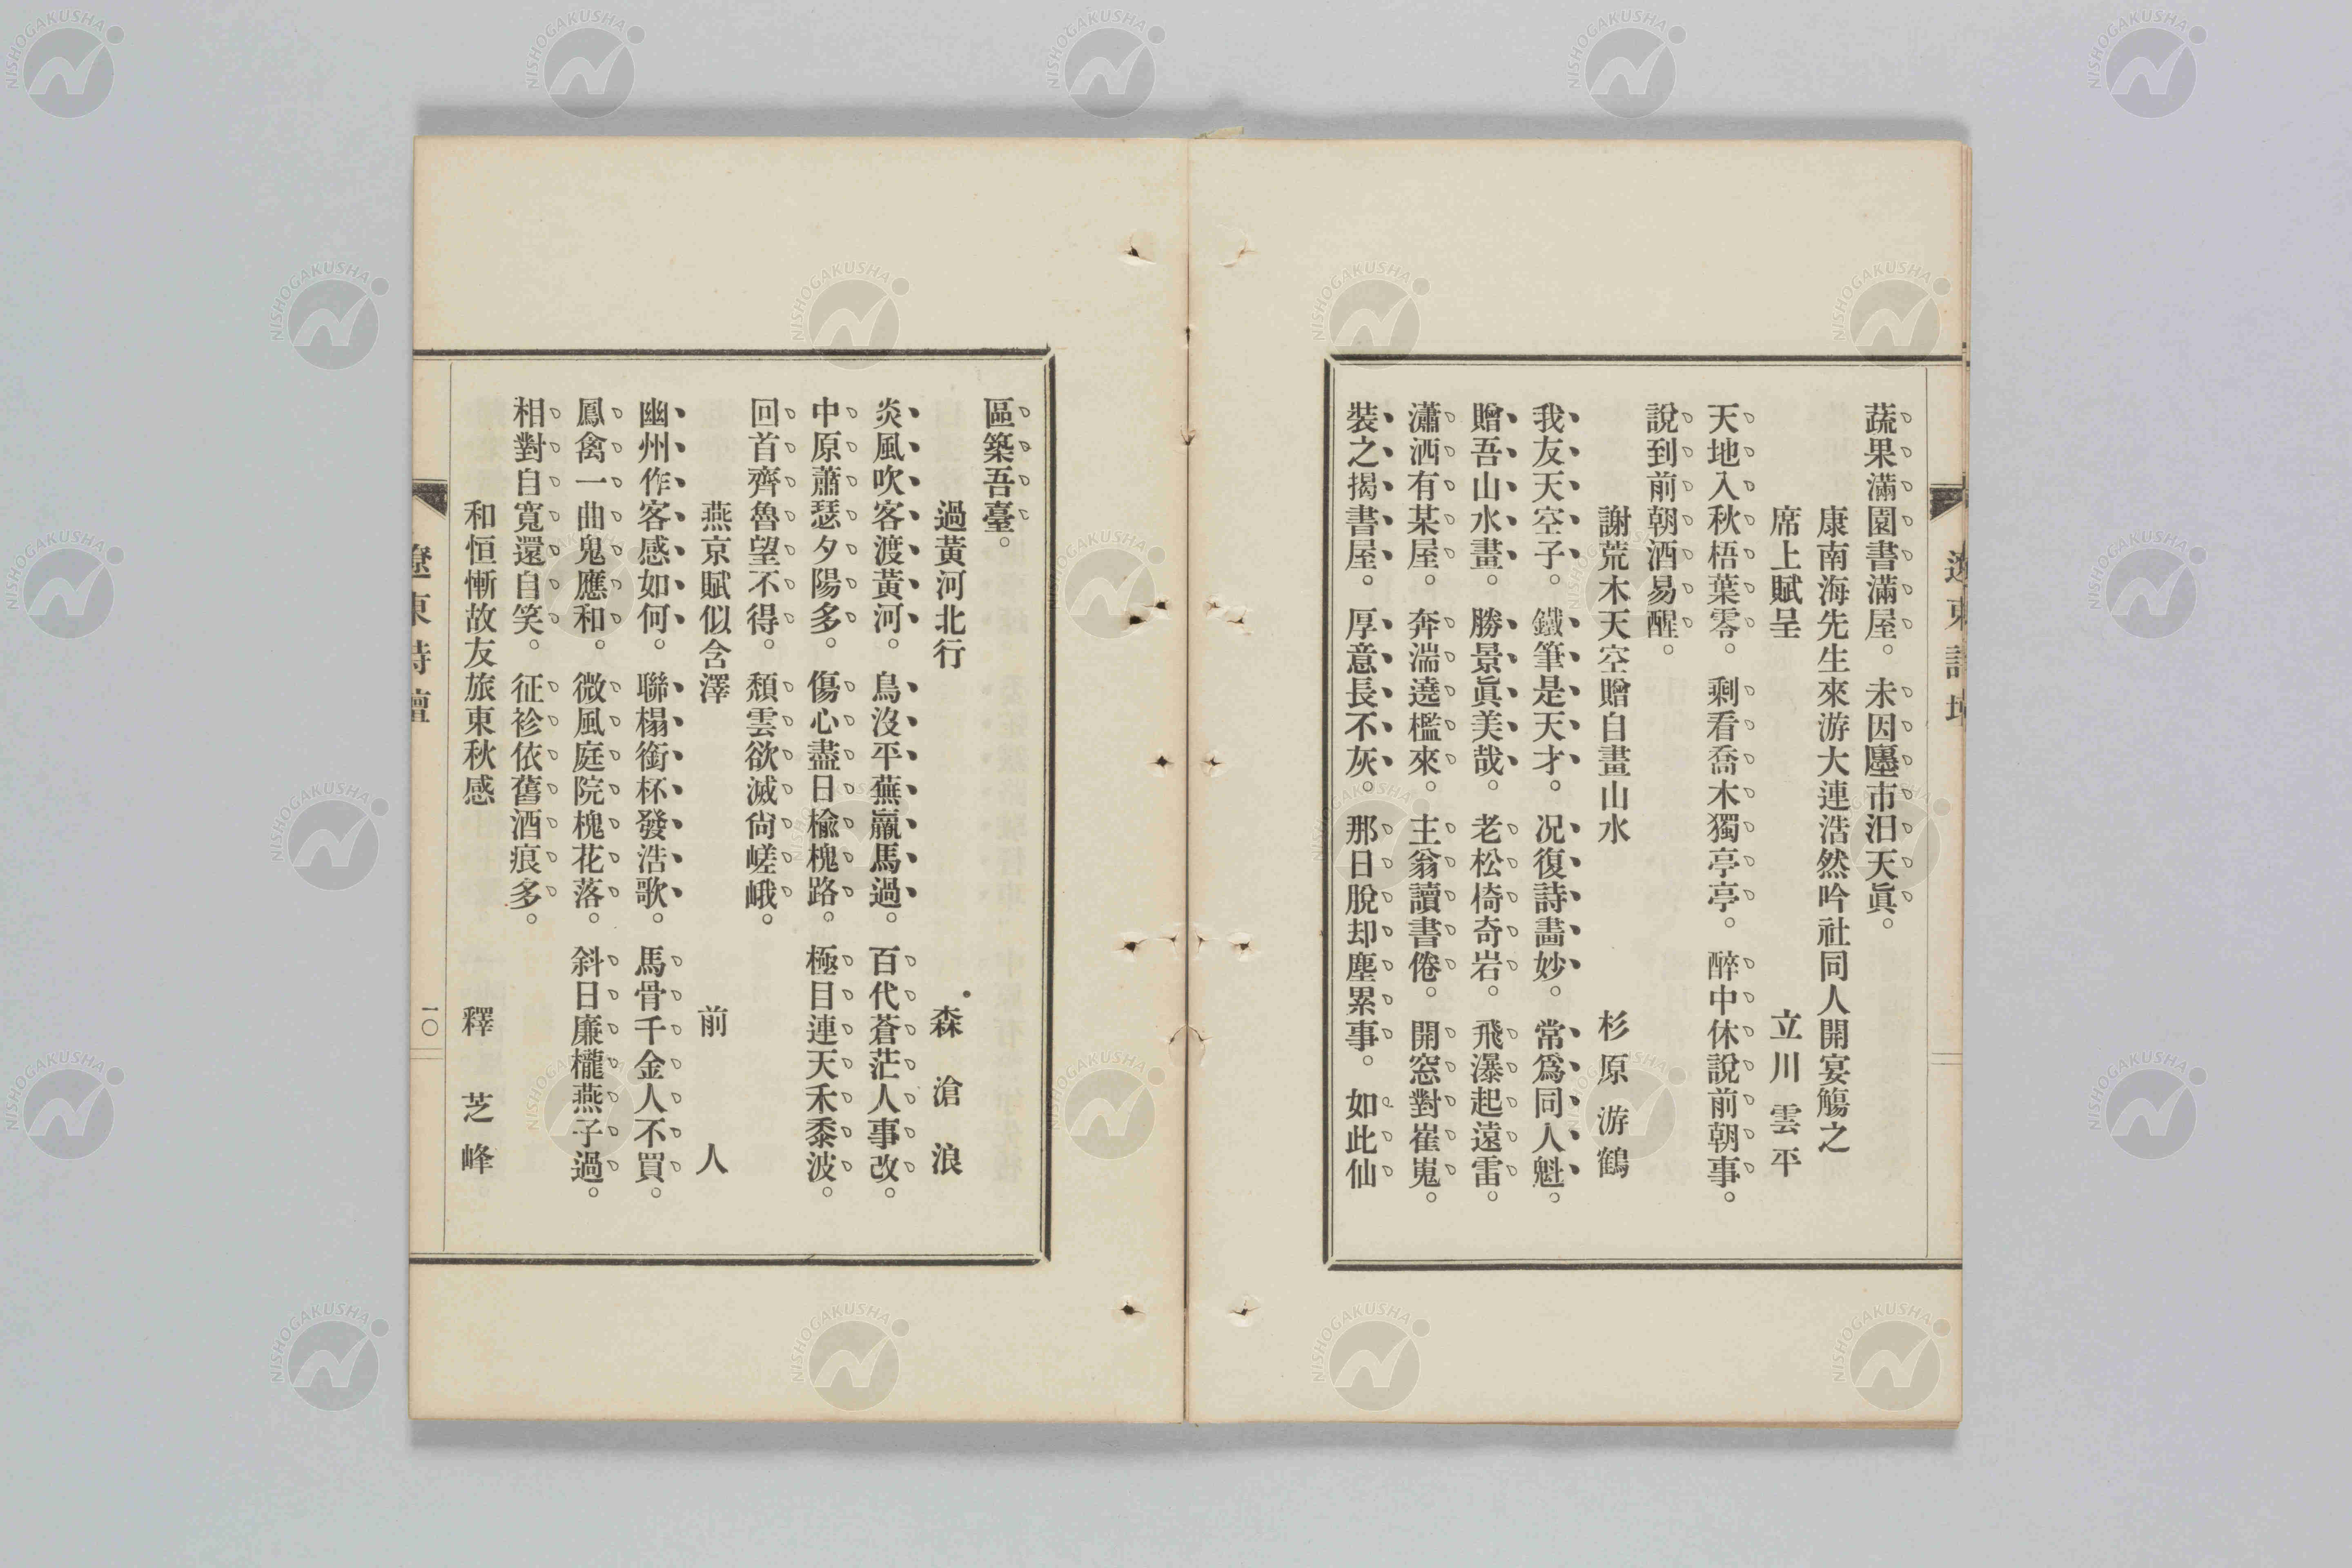 蔬果滿園書滿屋。未因廛市汨天眞。
康南海先生來游大連浩然吟社同人開宴觴之
席上賦呈　立川雲平
天地入秋梧葉零。剩看喬木獨亭亭。醉中休說前朝事。
說到前朝酒易醒。
謝荒木天空贈自畫山水　杉原游鶴
我友天空子。鐵筆是天才。况復詩畵妙。常爲同人魁。
贈吾山水畫。勝景眞美哉。老松椅奇岩。飛瀑起遠雷。
瀟洒有某屋。奔湍遶檻來。主翁讀書倦。開窓對崔嵬。
裝之揭書屋。厚意長不灰。那日脫却塵累事。如此仙
區築吾臺。
過黃河北行　森滄浪
炎風吹客渡黃河。鳥沒平蕪羸馬過。百代蒼茫人事改。
中原蕭瑟夕陽多。傷心盡日楡槐路。極目連天禾黍波。
回首齊魯望不得。頽雲欲滅尙嵯峨。
燕京賦似含澤　前人
幽州作客感如何。聯榻銜杯發浩歌。馬骨千金人不買。
鳳禽一曲鬼應和。微風庭院槐花落。斜日廉櫳燕子過。
相對自寬還自笑。征衫依舊酒痕多。
和恒慚故友旅東秋感　釋芝峰
遼東詩壇
一〇
NISHOGAKUSHA